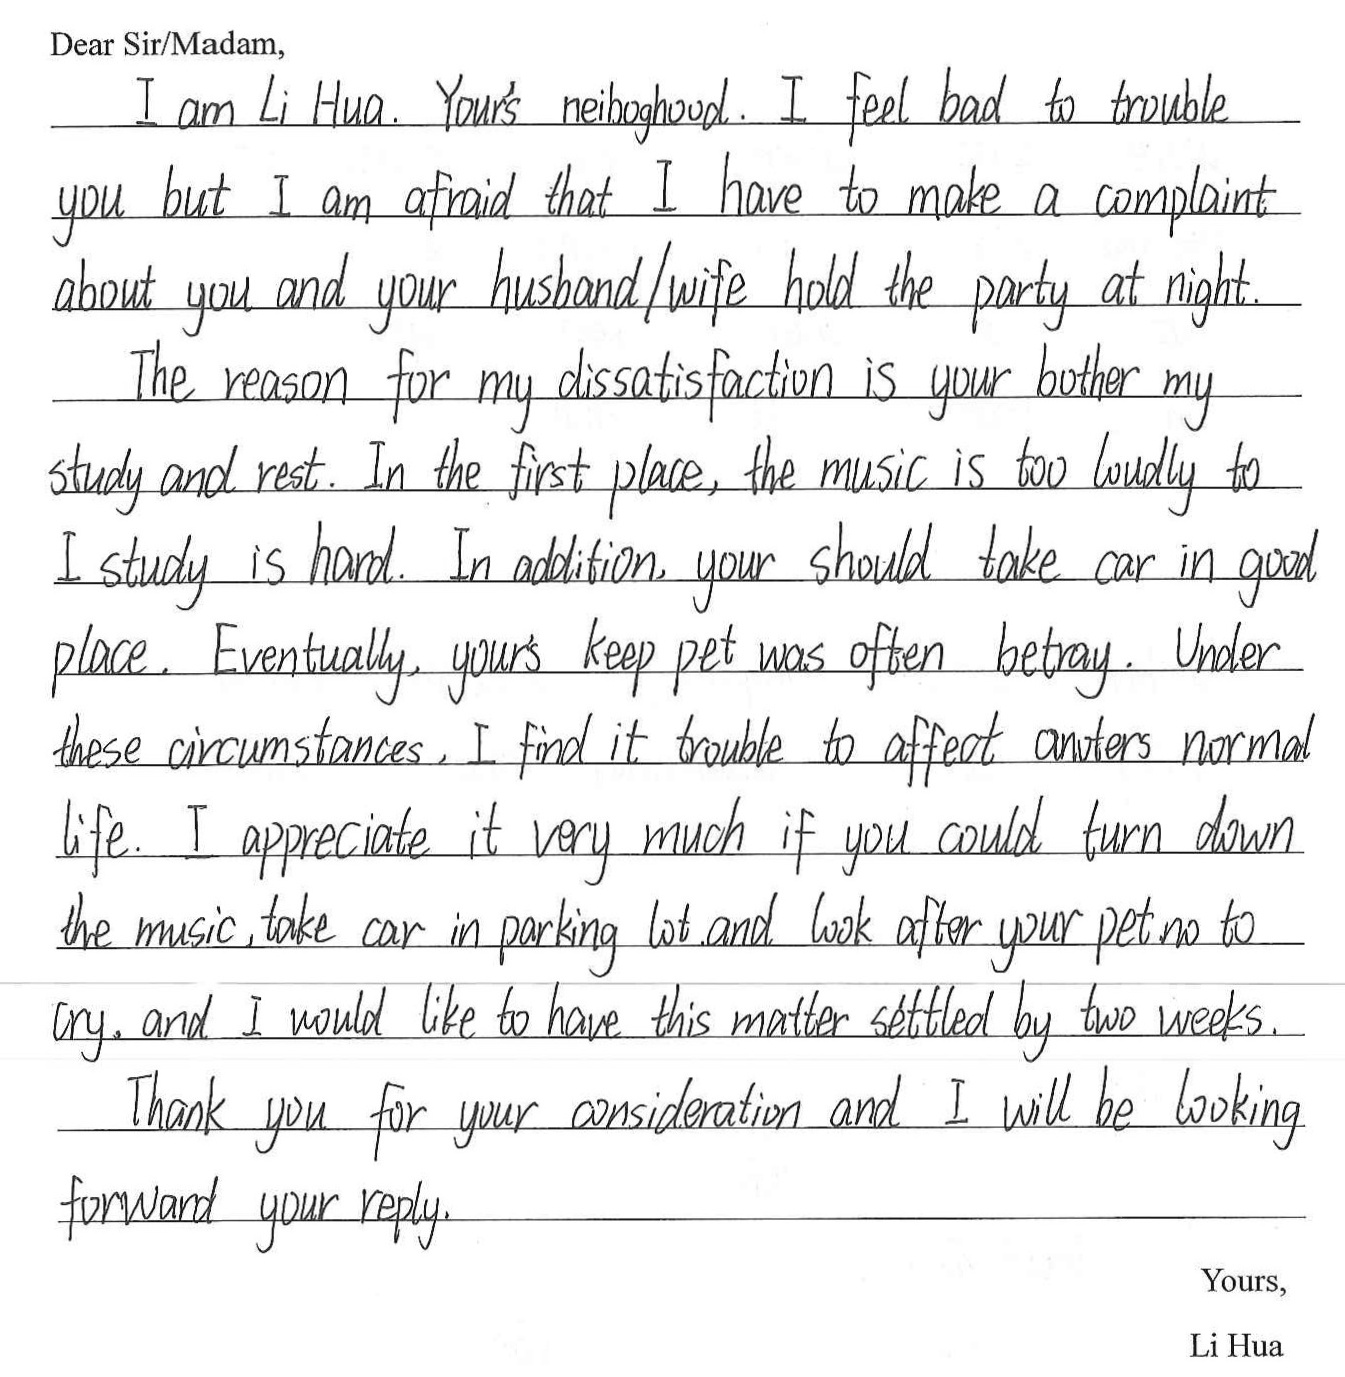 Dear Sir/Madam,
I am Li Hua. Your's neiboghood. I feel bad to trouble
you but I am afraid that I have to make a complaint
about you and your husband/wife hold the party at night.
The reason for my dissatisfaction is your bother my
study and rest. In the first place, the music is too loudly to
I study is hard. In addition, your should take car in good
place. Eventually, your's keep pet was often betray. Under
these circumstances, I find it trouble to affect anoters normal
life. I appreciate it very much if you could turn down
the music, take car in parking lot.and look after your pet.no to
cry. and I would like to have this matter settled by two weeks.
Thank you for your consideration and I will be looking
forward your reply.
Yours,
Li Hua